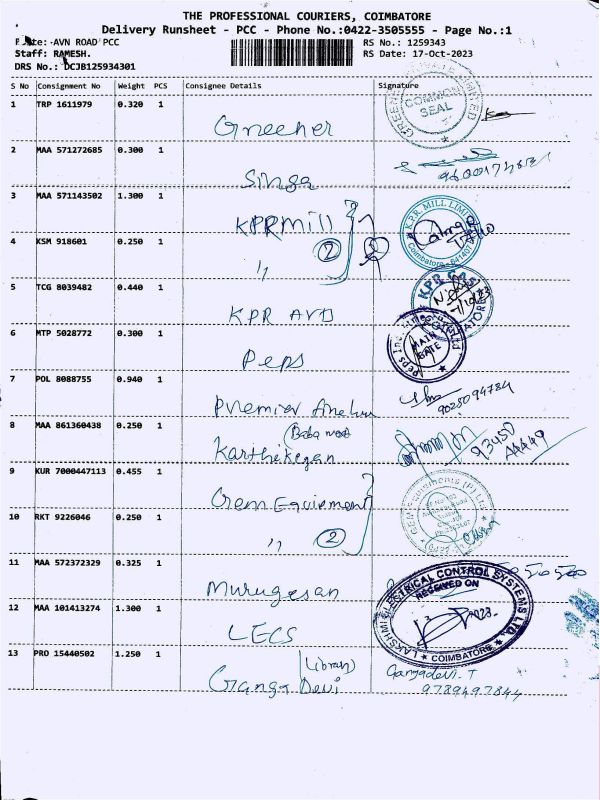 THE PROFESSIONAL COURIERS, COIMBATORE
Delivery Runsheet - PCC - Phone No.:0422-3505555 - Page No.:1
AVN ROAD PCC RS No.: 1259343
Staff: RAMESH. RS Date: 17-Oct-2023
DRS No.: DCJB125934301
S No Consignment No Weight PCS Consignee Details Signature
1 TRP 1611979 0.320 1
Greener
COMMON SEAL
2 MAA 571272685 0.300 1
Singa
3 MAA 571143502 1.300 1
KPR Mill
K.P.R. MILL LIMI
Coimbatore - 641407
2
4 KSM 918601 0.250 1
"
5 TCG 8039482 0.440 1
KPR AVD
KPR
6 MTP 5028772 0.300 1
Peps
MAIN GATE
7 POL 8088755 0.940 1
Premier
9025094784
8 MAA 861360438 0.250 1
Karthikeyan
93450
9 KUR 7000447113 0.455 1
Gem Equipment
10 RKT 9226046 0.250 1
" 2
11 MAA 572372329 0.325 1
Murugesan
12 MAA 101413274 1.300 1
LECS
LAKSHMI ELECTRICAL CONTROL SYSTEMS LTD.
RECEIVED ON
COIMBATORE
13 PRO 15440502 1.250 1
(Library)
Ganga Devi
Gangadevi.T
9789497844